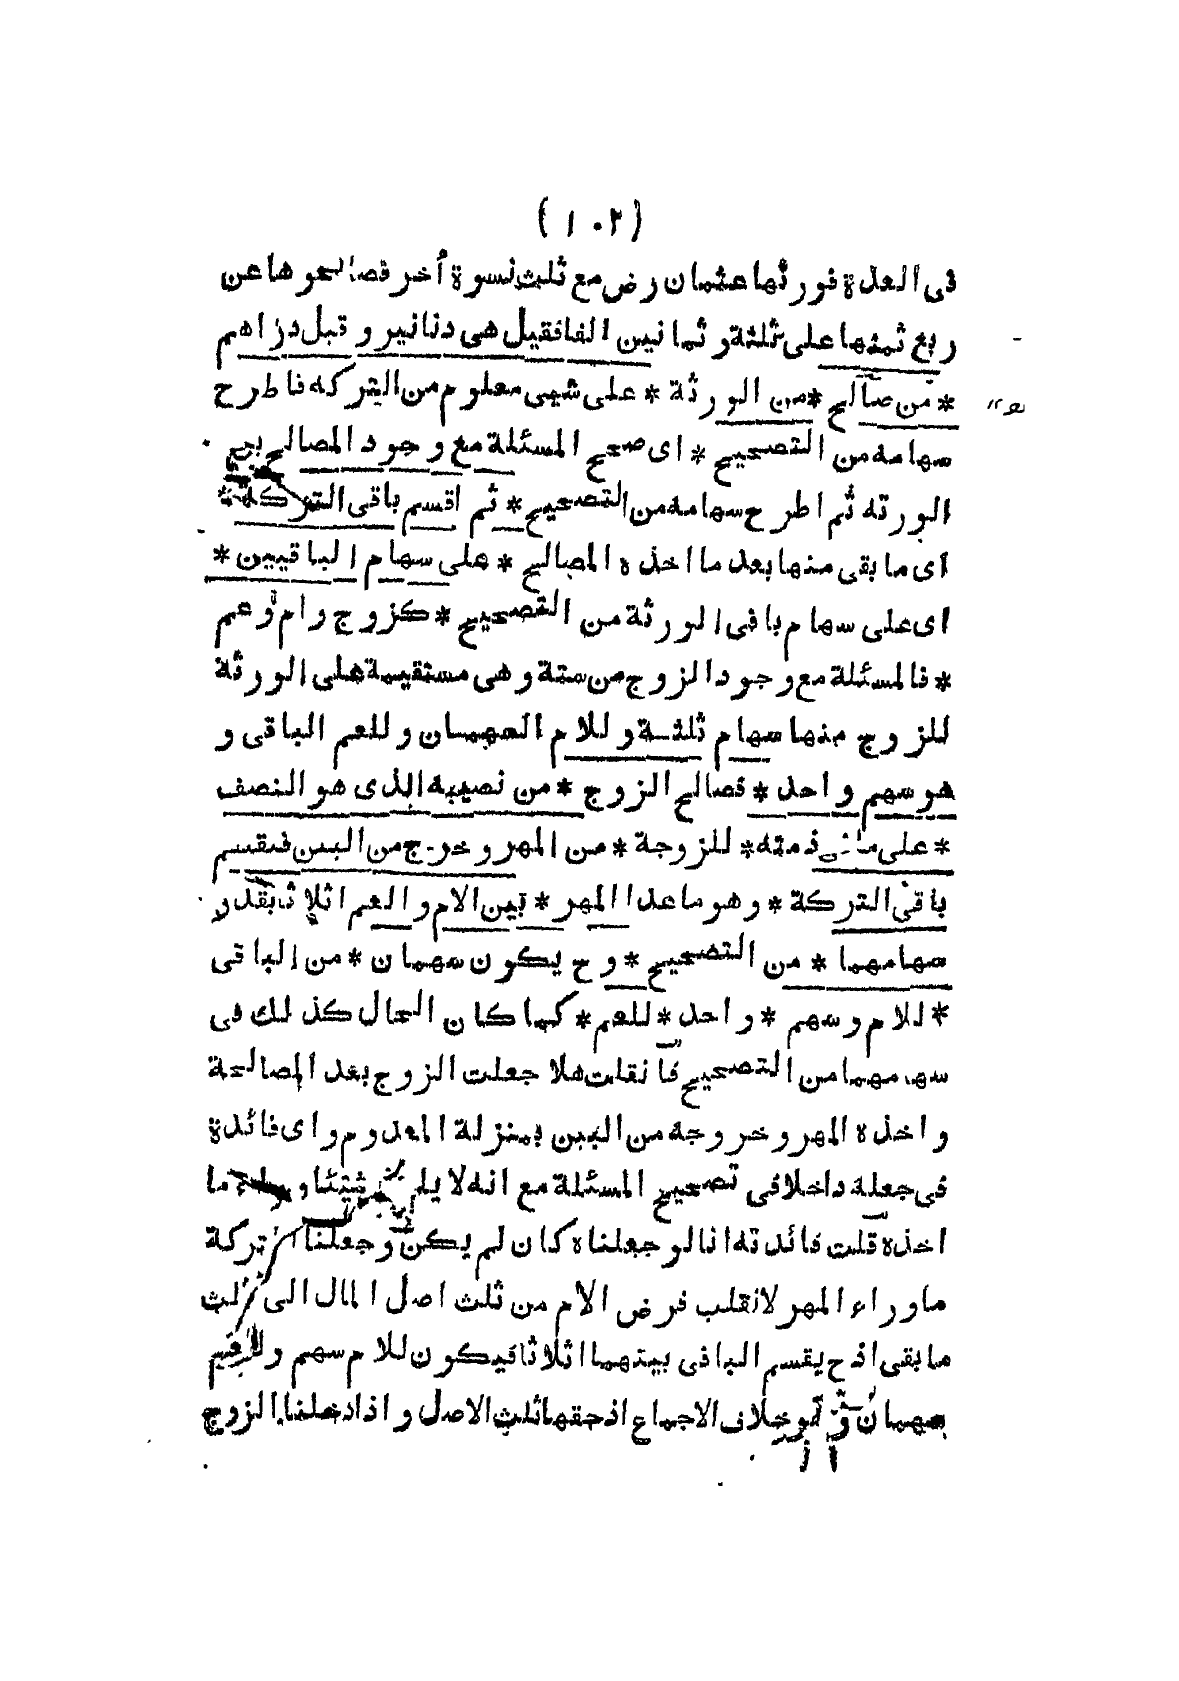 (١٠٢)
فى العدة فورثها عثمان رض مع ثلث نسوة أخر فصالحوها عن
ربع ثمنها على ثلثة وثمانين الفا فقيل هى دنانير و قبل دراهم
* من صالح * من الورثة * على شيئ معلوم من التركه فاطرح
سهامه من التصحيح * اى صحح المسئلة مع وجود المصالح بين
الورثه ثم اطرح سهامه من التصحيح * ثم اقسم باقى التركة *
اى ما بقى منها بعد ما اخذه المصالح * على سهام الباقيين *
اى على سهام باقى الورثة من التصحيح * كزوج وام وعم
* فالمسئلة مع وجود الزوج من ستة وهى مستقيمة على الورثة
للزوج منها سهام ثلثة وللام السهمان وللعم الباقى و
هو سهم واحد * فصالح الزوج * من نصيبه الذى هو النصف
* على ما فى ذمته * للزوجة * من المهر وخرج من البين فيقسم
باقى التركة * وهو ما عدا المهر * بين الام والعم اثلاثا بقدر
سهامهما * من التصحيح * وح يكون سهمان * من الباقى
* للام وسهم * واحد * للعم * كما كان الحال كذلك فى
سهامهما من التصحيح فان قلت هلا جعلت الزوج بعد المصالحة
واخذه المهر وخروجه من البين بمنزلة المعدوم واى فائدة
فى جعله داخلا فى تصحيح المسئلة مع انه لا شيئا وراء ما
اخذه قلت فائدته انا لو جعلناه كان لم يكن وجعلنا التركة
ماوراء المهر لانقلب فرض الام من ثلث اصل المال الى ثلث
ما بقى اذ ح يقسم الباقى بينهما اثلاثا فيكون للام سهم وللعم
سهمان وهو خلاف الاجماع اذ حقها ثلث الاصل واذا ادخلنا الزوج